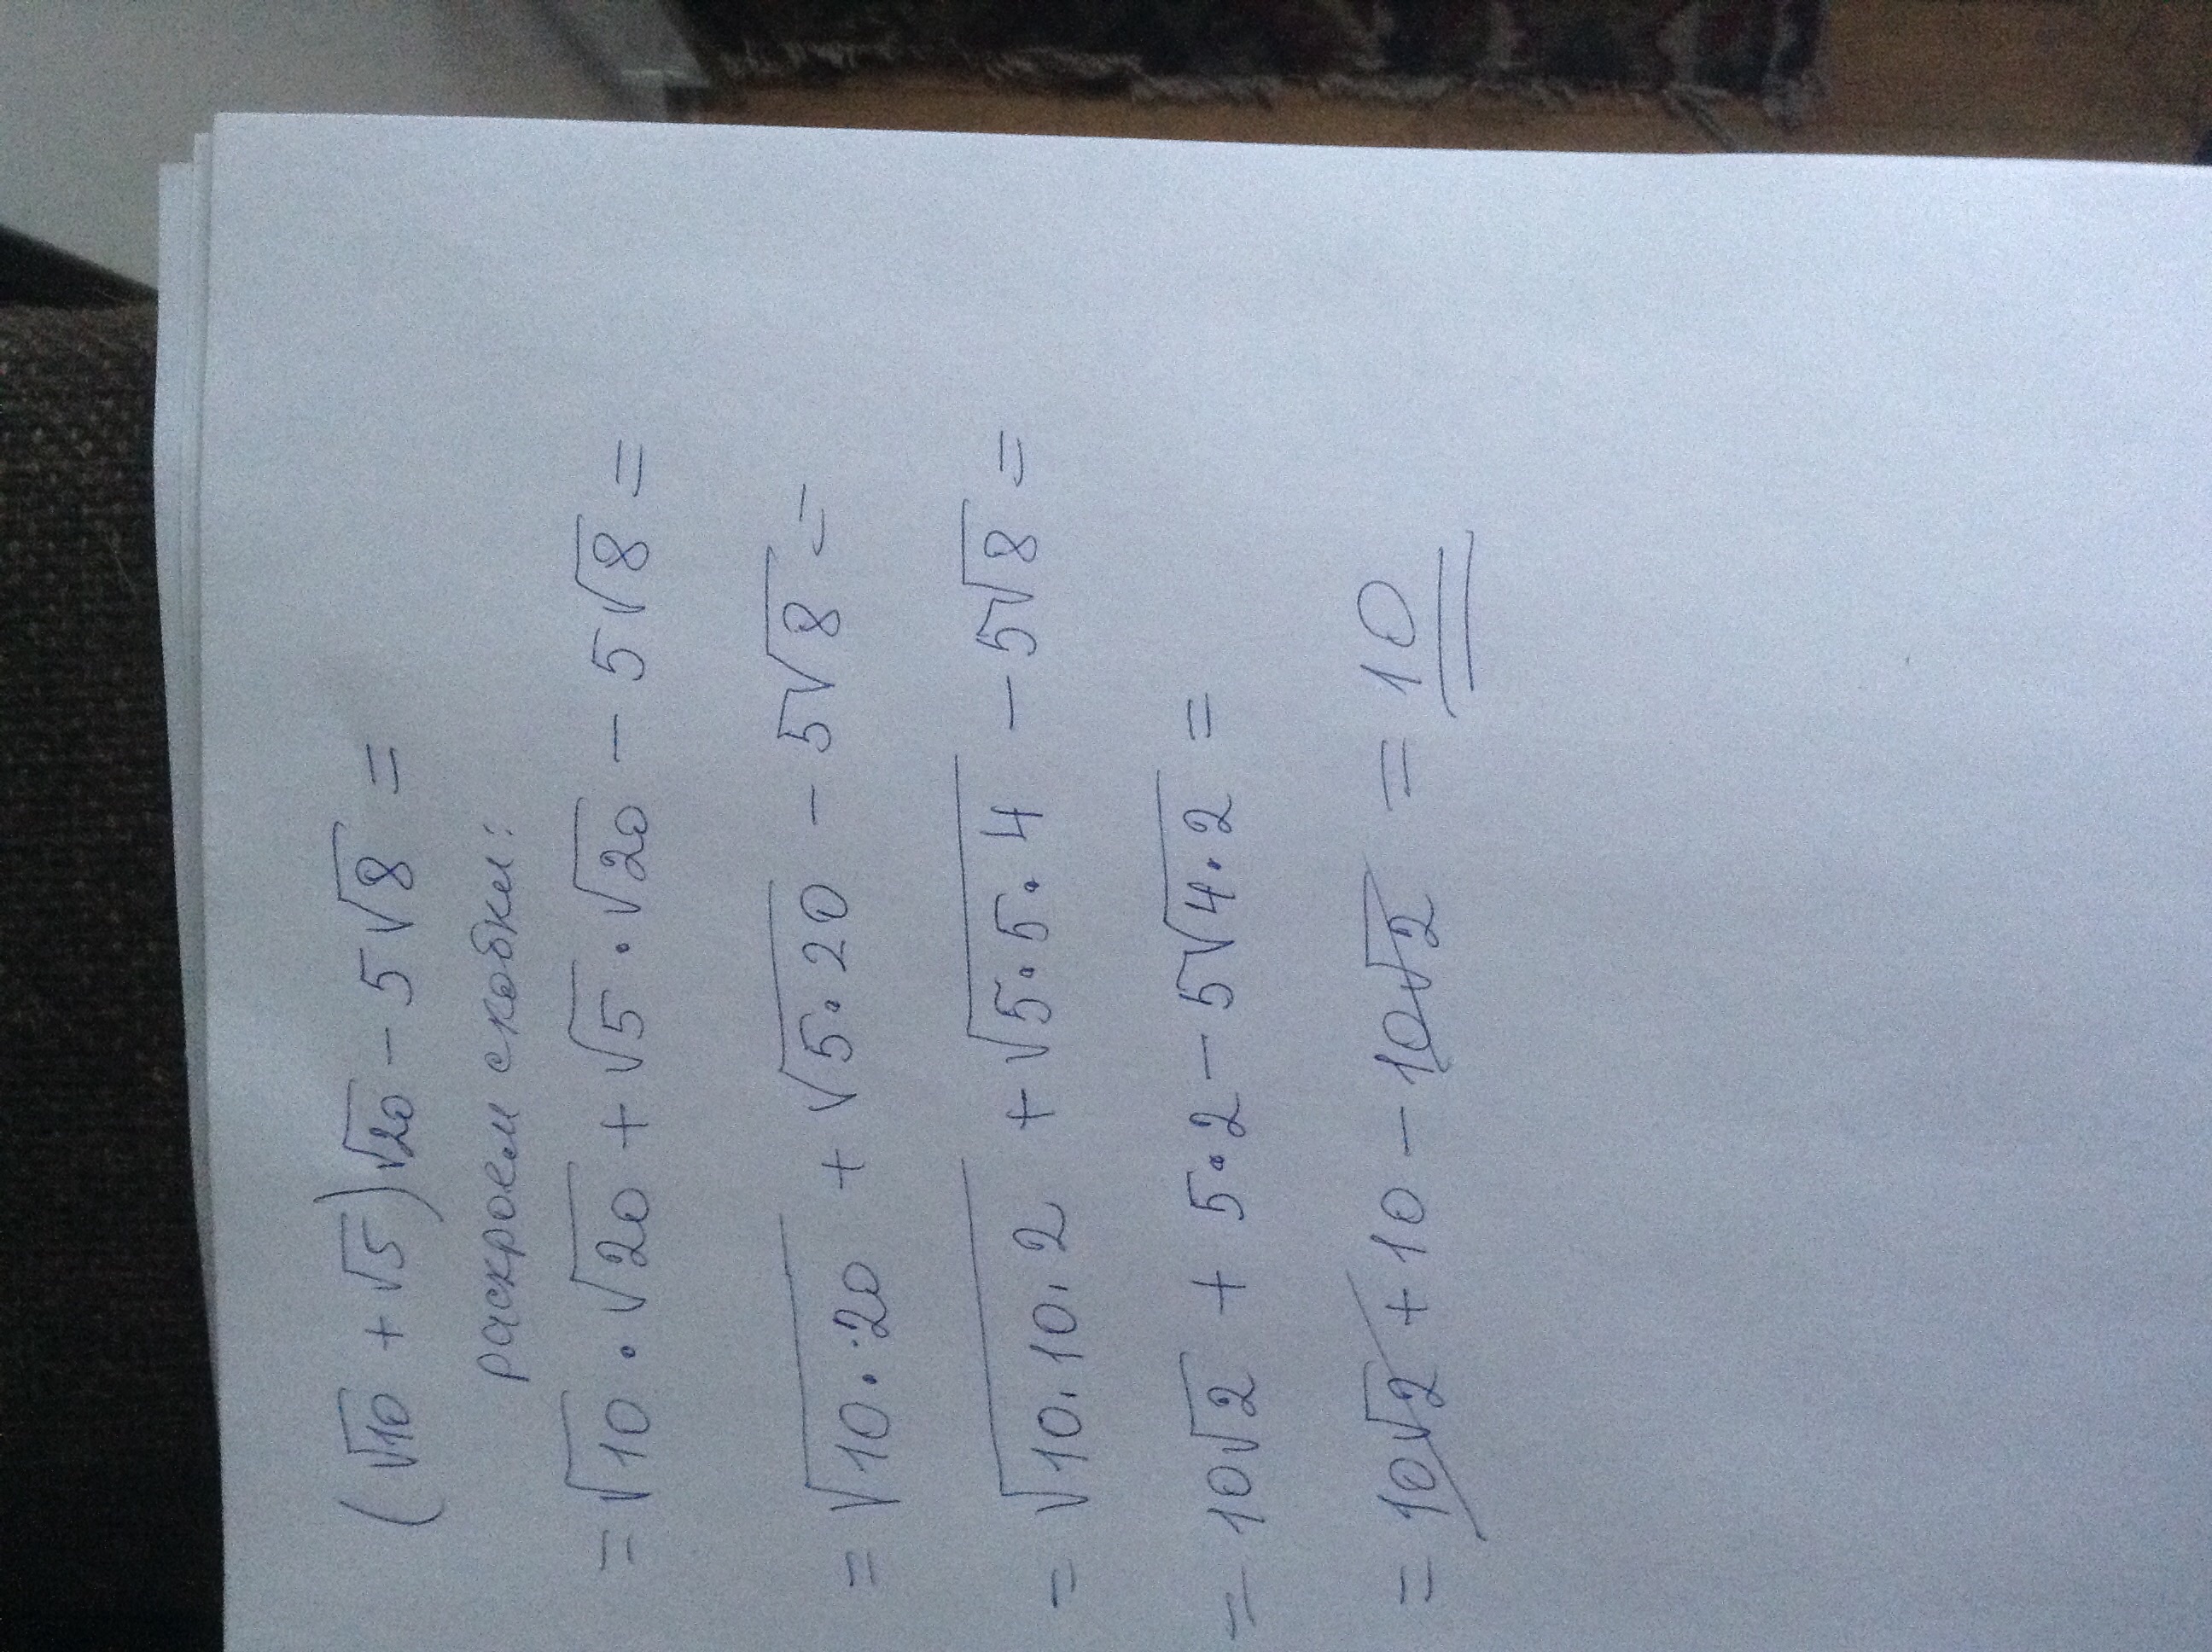 (√10 + √5)√20 - 5√8 =
раскроем скобки:
= √10 · √20 + √5 · √20 - 5√8 =
= √10·20 + √5·20 - 5√8 =
= √10·10·2 + √5·5·4 - 5√8 =
= 10√2 + 5·2 - 5√4·2 =
= 10√2 + 10 - 10√2 = 10